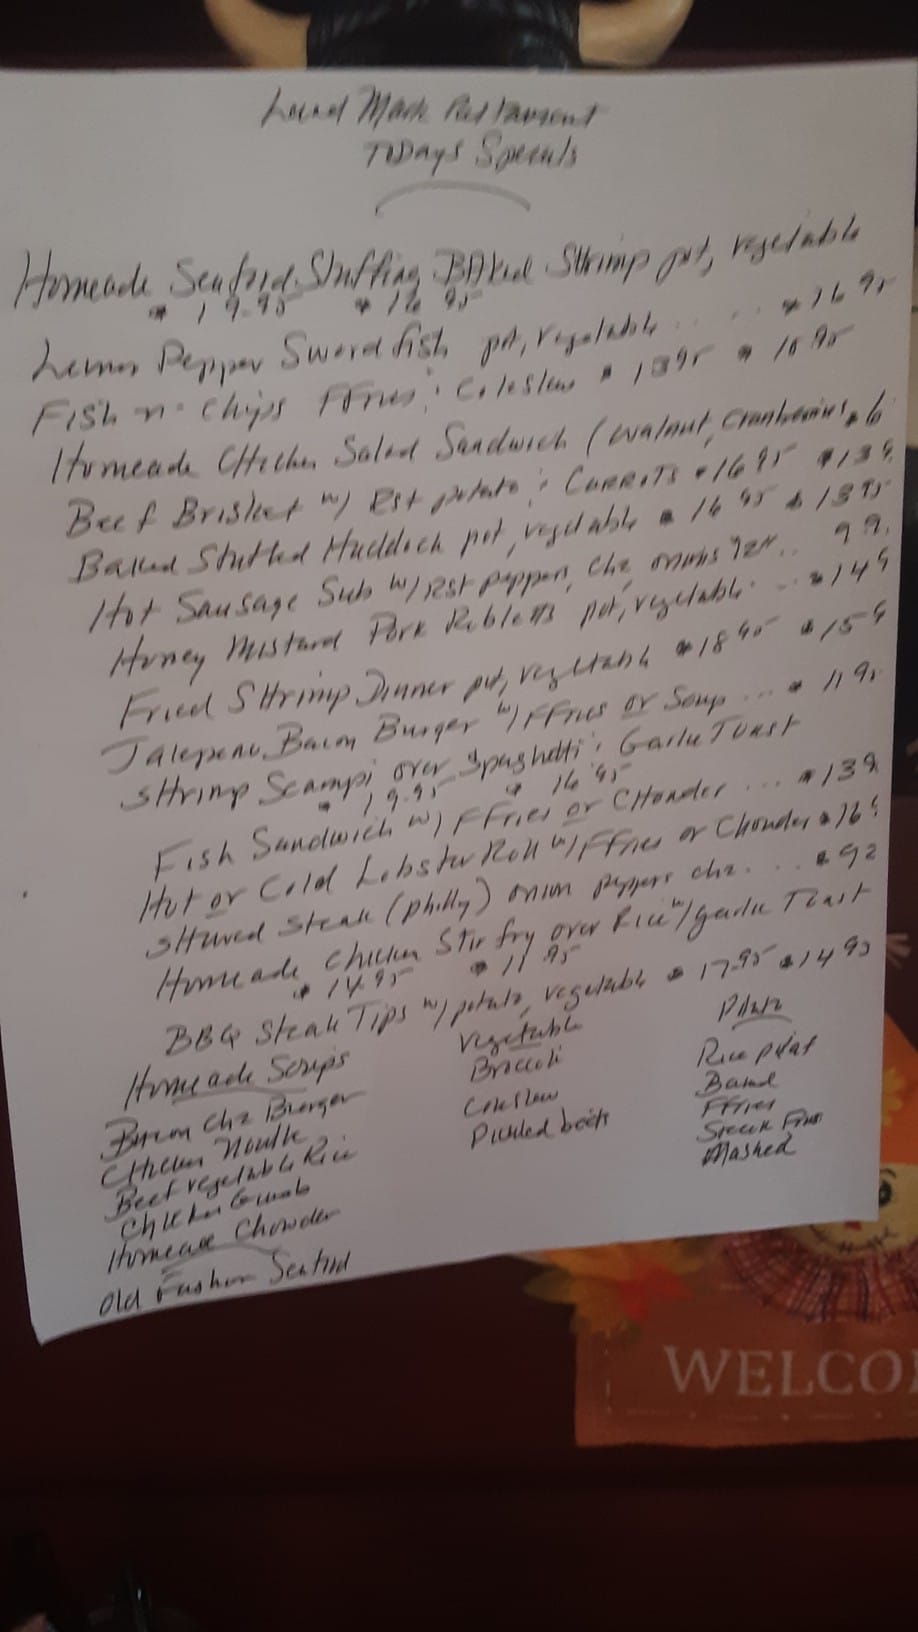 Land Mark Restaurant
Todays Specials
Homeade Seafood Stuffing Baked Shrimp pot, vegetable
$19.95 $16 95
Lemon Pepper Swordfish pot, vegetable ..... $16 95
Fish n. Chips FFries & Coleslaw $ 13 95 $ 10 95
Homeade Chicken Salad Sandwich (walnut, cranberries $6
Beef Brisket w/ Rst potato & CARROTS $16 95 $13 9
Baked Stuffed Haddock pot, vegetable $ 16 95 $ 13 95
Hot Sausage Sub w/ Rst peppers, chz, onions .. 9 9
Honey Mustard Pork Ribletts pot, vegetable ... $14 9
Fried SHrimp Dinner pot, vegetable $18 95 $15 9
Jalepeno Bacon Burger w/ FFries or Soup ... $ 11 95
SHrimp Scampi over Spaghetti & Garlic Toast
$ 19.95 $ 16 95
Fish Sandwich w/ FFries or CHowder ... $13 9
Hot or Cold Lobster Roll w/ FFries or Chowder $16 9
SHaved Steak (philly) onion peppers chz. ... $ 9 2
Homeade Chicken Stir fry over Rice w/ garlic Toast
$ 14.95 $ 11 95
BBQ Steak Tips w/ potato, vegetable $ 17.95 $14 95
Homeade Soups
Bacon chz Burger
CHicken Noodle
Beef vegetable Rice
CHicken Gumbo
Homeade Chowder
Old Fashion Seafood
Vegetable
Broccoli
Coleslaw
Pickled beets
Potato
Rice pilaf
Baked
FFries
Mashed
WELCO